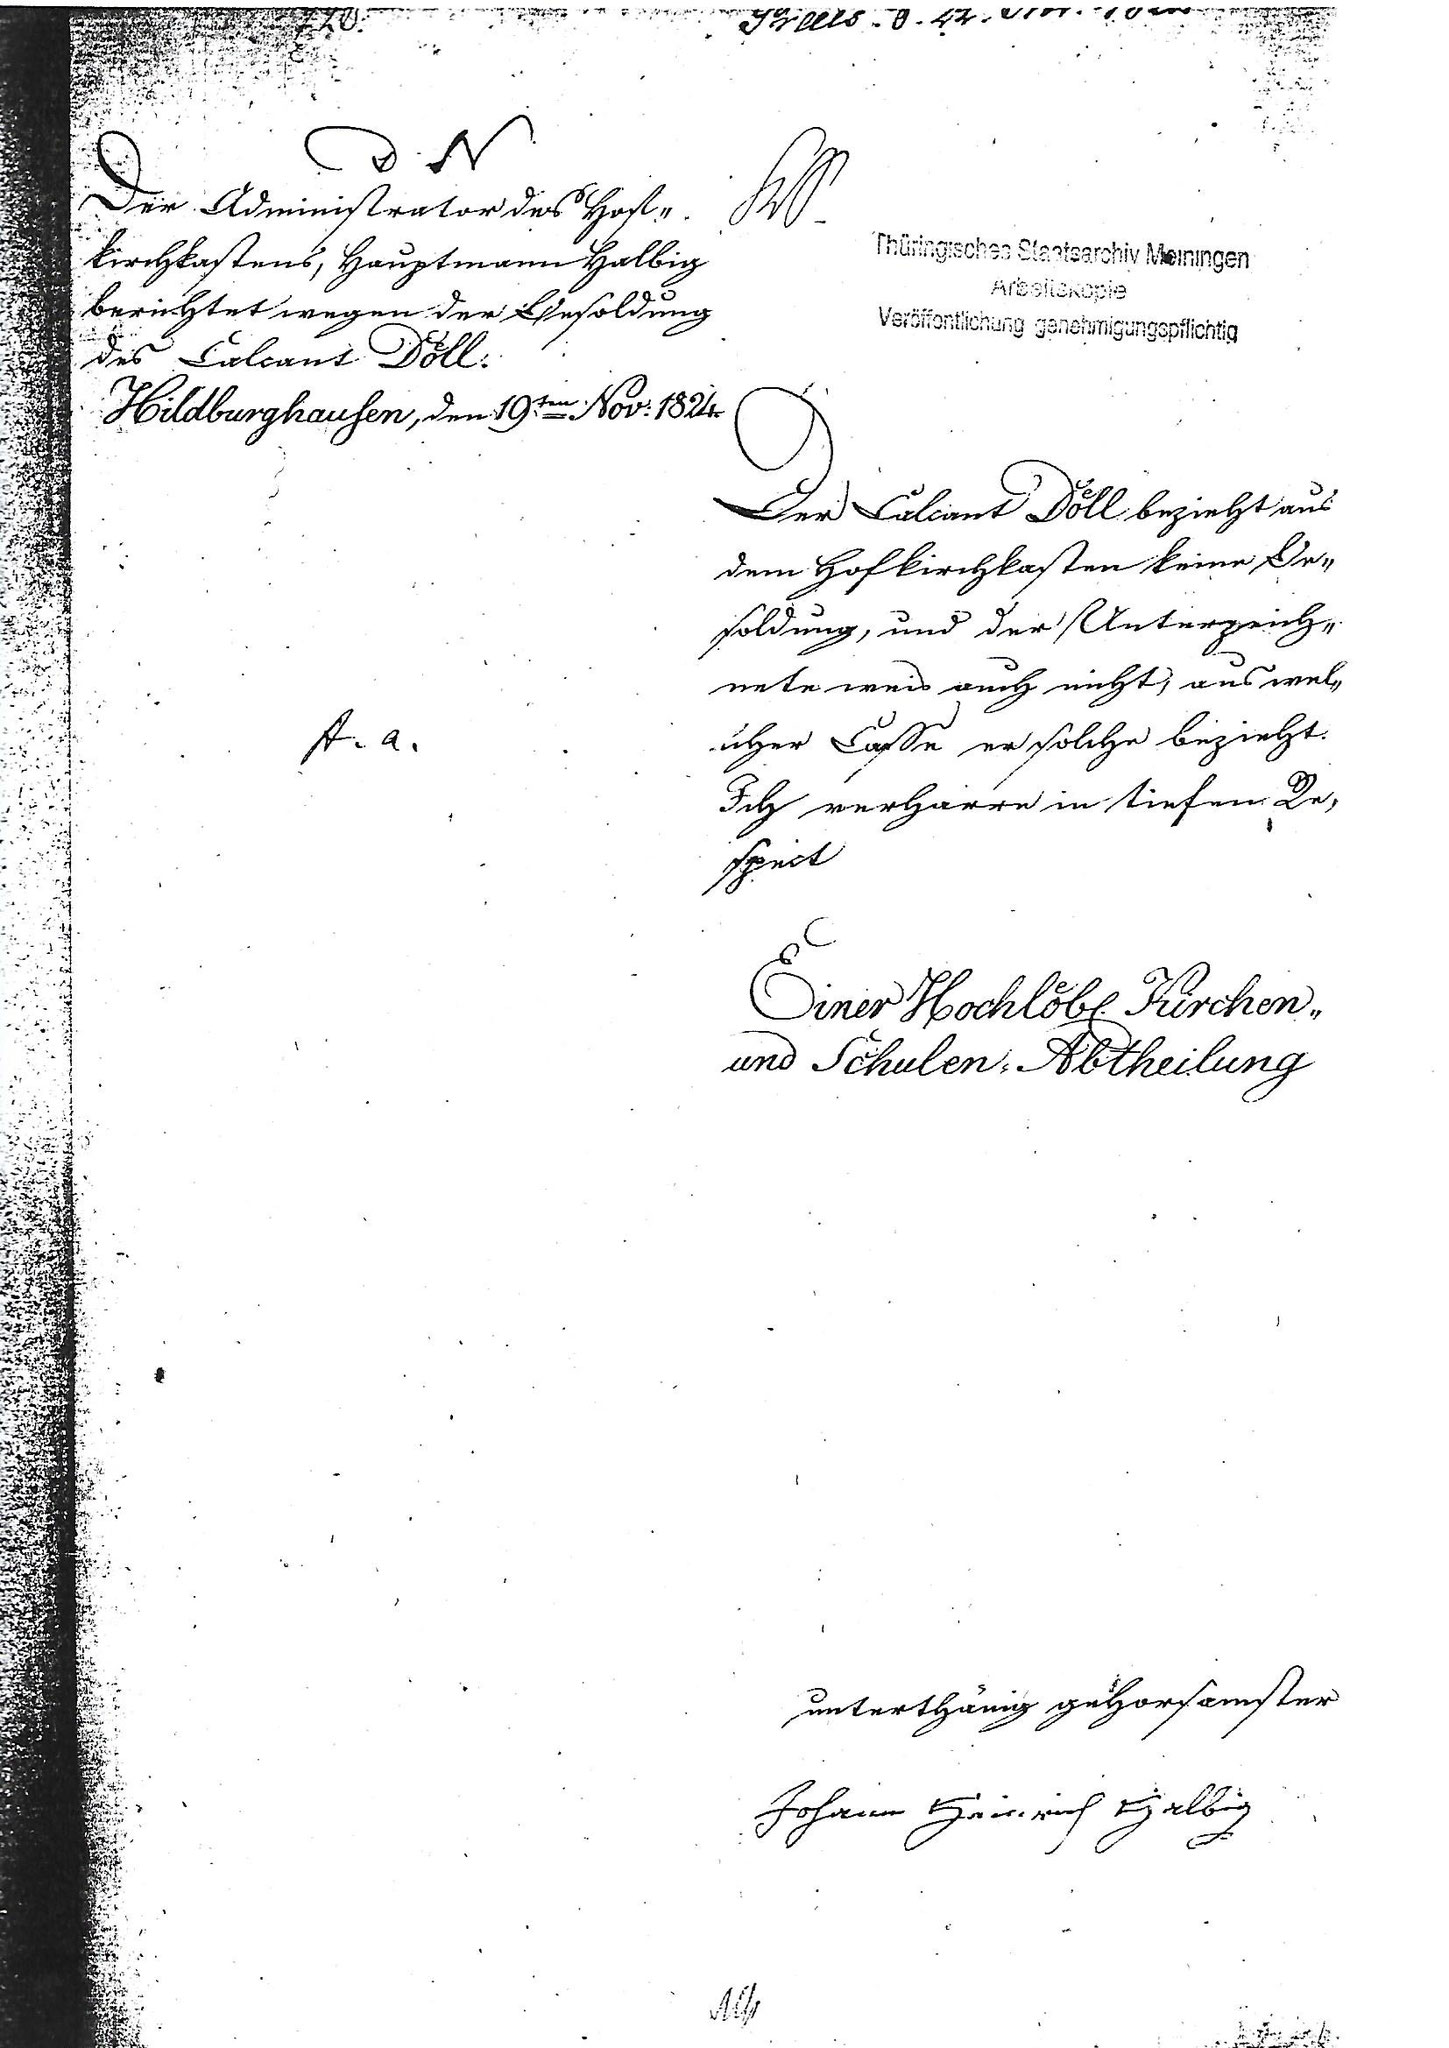 220.
D. N
Der Administrator des Hof-
kirchkastens, Hauptmann Halbig
berichtet wegen der Besoldung
des Calcant Döll.
Hildburghausen, den 19ten Nov: 1824.
Thüringisches Staatsarchiv Meiningen
Arbeitskopie
Veröffentlichung genehmigungspflichtig
Der Calcant Döll bezieht aus
dem Hofkirchkasten keine Be-
soldung, und der Unterzeich-
nete weis auch nicht, aus wel-
cher Casse er solche bezieht.
Ich verharre in tiefen Re-
spect
A. a.
Einer Hochlöbl. Kirchen-
und Schulen-Abtheilung
unterthänig gehorsamster
Johann Heinrich Halbig